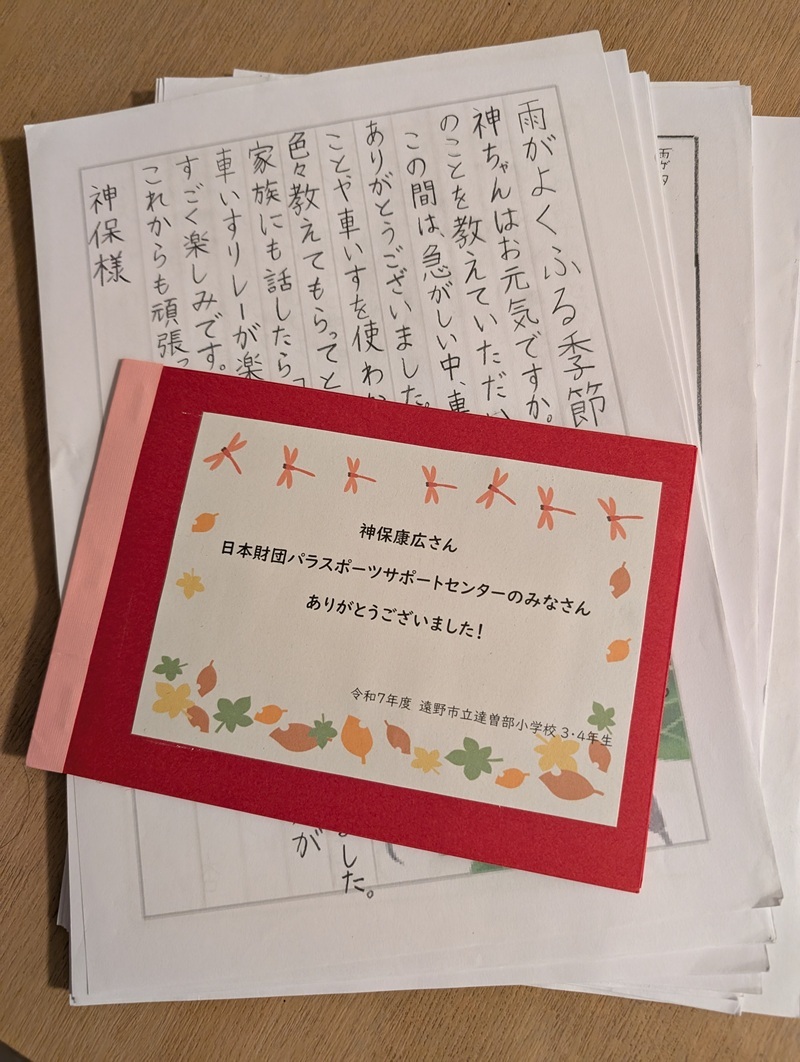 雨がよくふる季節
神ちゃんはお元気ですか。
のことを教えていただい
この間は、急がしい中、車
ありがとうございました。
ことや車いすを使わ
色々教えてもらってと
家族にも話したら「
車いすリレーが楽
すごく楽しみです。
これからも頑張っ
神保様
神保康広さん
日本財団パラスポーツサポートセンターのみなさん
ありがとうございました!
令和7年度 遠野市立達曽部小学校 3・4年生
した。
が